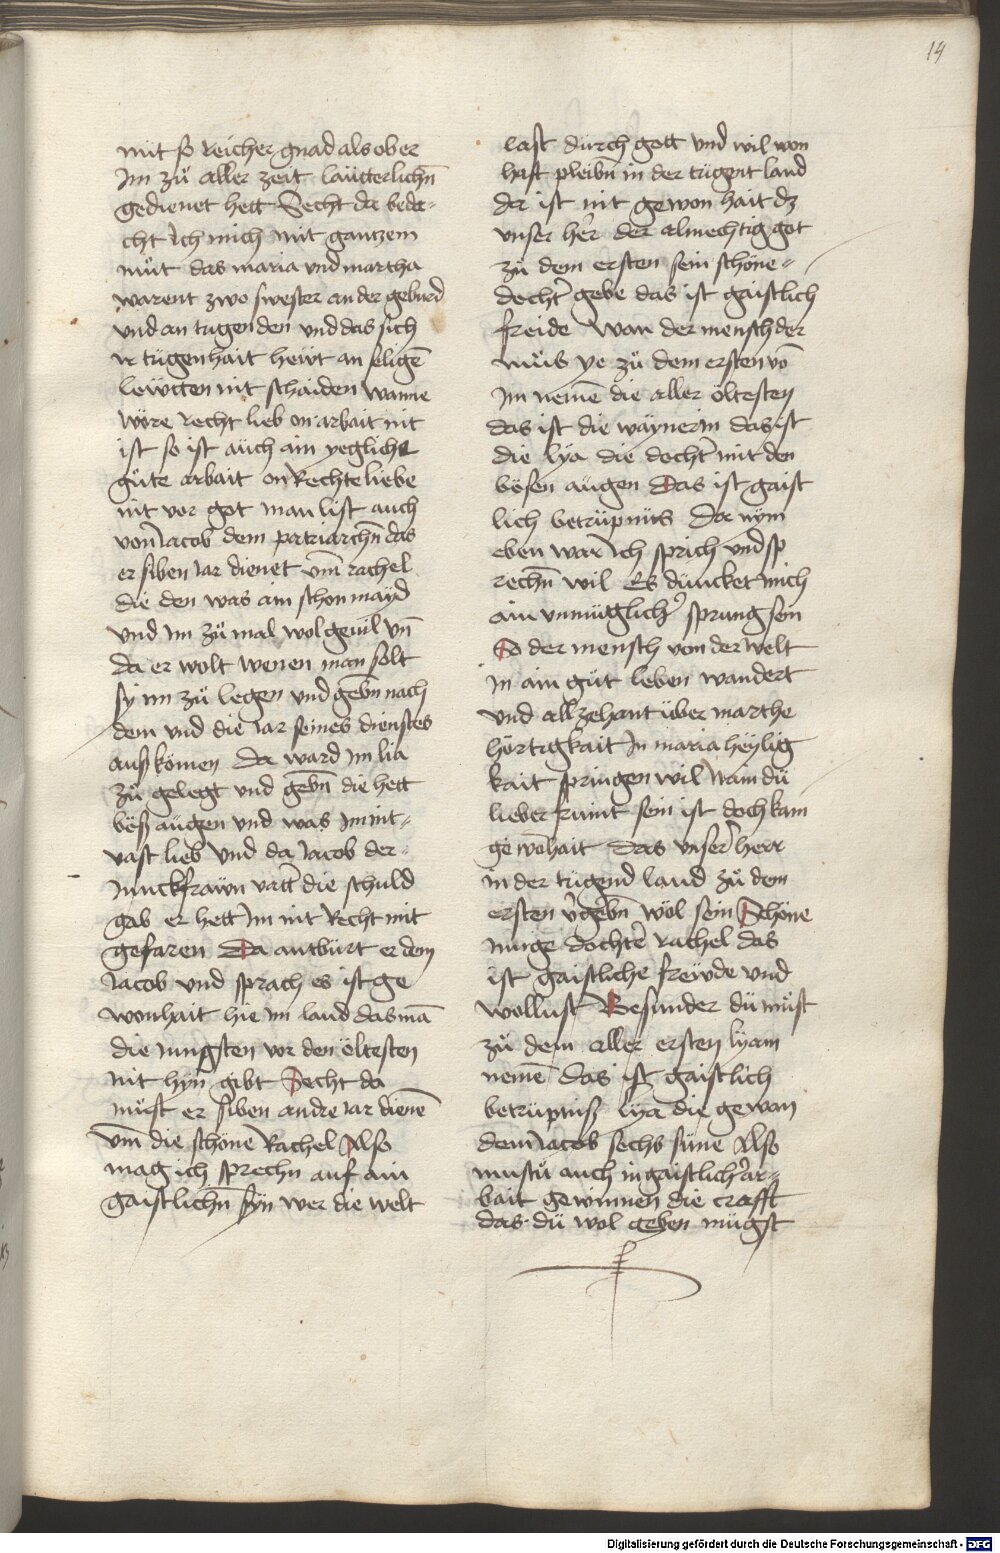 14
mit so reicher gnad als ob er
Im zů aller zeit lautterlichn̄
gedienet hett Secht da beda-
cht Ich mich mit gantzem
můt das maria vnd martha
warent zwo swester an der geburd
vnd an tugenden vnd das sich
ir tugenhait hewt an seligē
lewtten nit schaiden wanne
wöre recht lieb on arbait nit
ist so ist auch ain yegliche
gůte arbait on Rechte liebe
nit vor got man list auch
von Jacob dem patriarchn̄ das
er siben Jar dienet vm̄ rachel
die den was ain schon mayd
vnd Im zů mal wol geuil vn̄
da er wolt wenen man solt
sy im zů legen vnd gebn̄ nach
dem vnd die Jar seines dienstes
auß kömen Da ward Im lia
zů gelegt vnd gebn̄ die hett
böß augen vnd was Im nit-
vast lieb vnd da Jacob der-
Junckfrawn vatt̄ die schuld
gab er hett Im nit Recht mit
gefaren Da antwurt er dem
Jacob vnd sprach es ist ge
wonhait hie im land das mā
die Jungsten vor den öltesten
nit hyn gibt Secht da
můst er siben andre Jar dienē
vm̄ die schöne Rachel Also
mag ich sprechn auf ain
gaistlichn̄ syn wer die welt
last durch gott vnd wil won
haft pleibn̄ in der tugent land
da ist nit gewonhait dz
vnser her̄ der almechtig got
zů dem ersten sein schöne-
docht̄ gebe das ist gaistlich
freide wan der mensch der
můs ye zů dem ersten vō
Im nemē die aller öltesten
das ist die waynerin das ist
die lya die docht̄ mit den
bösen augen Das ist gaist
lich betrüpnüs Da nym
eben war Ich sprich vnd sp
rechn̄ wil Es duncket mich
ain vnmuglich̄ sprung sein
So der mensch von der welt
in ain gůt leben wandert
vnd allzehant über marthe
hörtigkait In maria heylig
kait springen wil Nain du
lieber frünt sein ist doch kain
gewōhait Das vnser herr
in der tugend land zů dem
ersten v̄gebn̄ wöl sein Schöne
Junge docht̄e rachel das
ist gaistliche frewde vnd
wollust Besunder du můst
zů dem aller ersten lyam
nemē Das ist gaistlich
betrüptniß lya die gewan
dem Jacob sechs süne Also
mustu auch in gaistlich̄ ar-
bait gewinnen die crafft
das du wol geben mugst
Digitalisierung gefördert durch die Deutsche Forschungsgemeinschaft - DFG